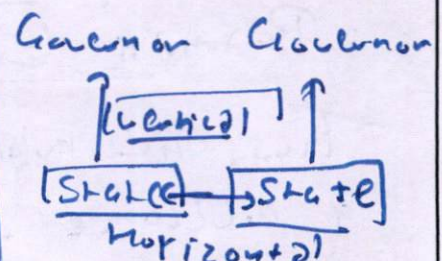 Governor Governor
Vertical
State State
Horizontal